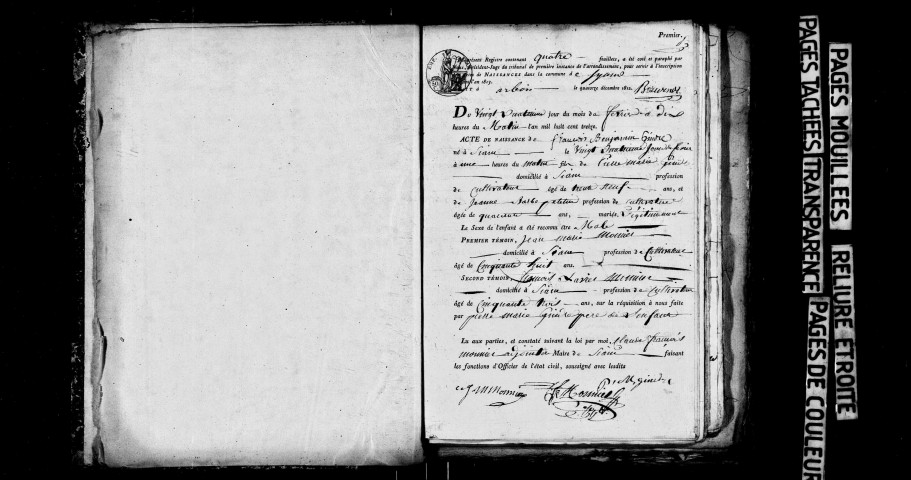 Premier
présent Registre contenant quatre feuillets, a été coté et paraphé par
Président-Juge du tribunal de première instance de l'arrondissement, pour servir à l'inscription
de NAISSANCES dans la commune de Syam
l'an 1813.
à arbois le quatorze décembre 1812.
Du Vingt quatrieme jour du mois de fevrier à dix
heures du Matin l'an mil huit cent treize.
ACTE DE NAISSANCE de françois Benjamin
né à Siam le Vingt quatrieme jour de fevrier
à une heures du matin fils de Pierre Marie
domicilié à Siam profession
de cultivateur âgé de trente neuf ans, et
de Jeanne profession de cultivatrice
âgée de quarante ans, mariés Légitimement
Le Sexe de l'enfant a été reconnu être Male
PREMIER TÉMOIN, Jean marie Monnier
domicilié à Siam profession de Cultivateur
âgé de Cinquante huit ans.
SECOND TÉMOIN, françois Xavier Monnier
domicilié à Siam profession de Cultivateur
âgé de Cinquante trois ans, sur la réquisition à nous faite
par pierre marie père de l'enfant
Lu aux parties, et constaté suivant la loi par moi, Claude françois
monnier adjoint Maire de Siam faisant
les fonctions d'Officier de l'état civil, soussigné avec lesdits
J M Monnier
PAGES MOUILLEES RELIURE ETROITE
PAGES TACHEES TRANSPARENCE PAGES DE COULEUR